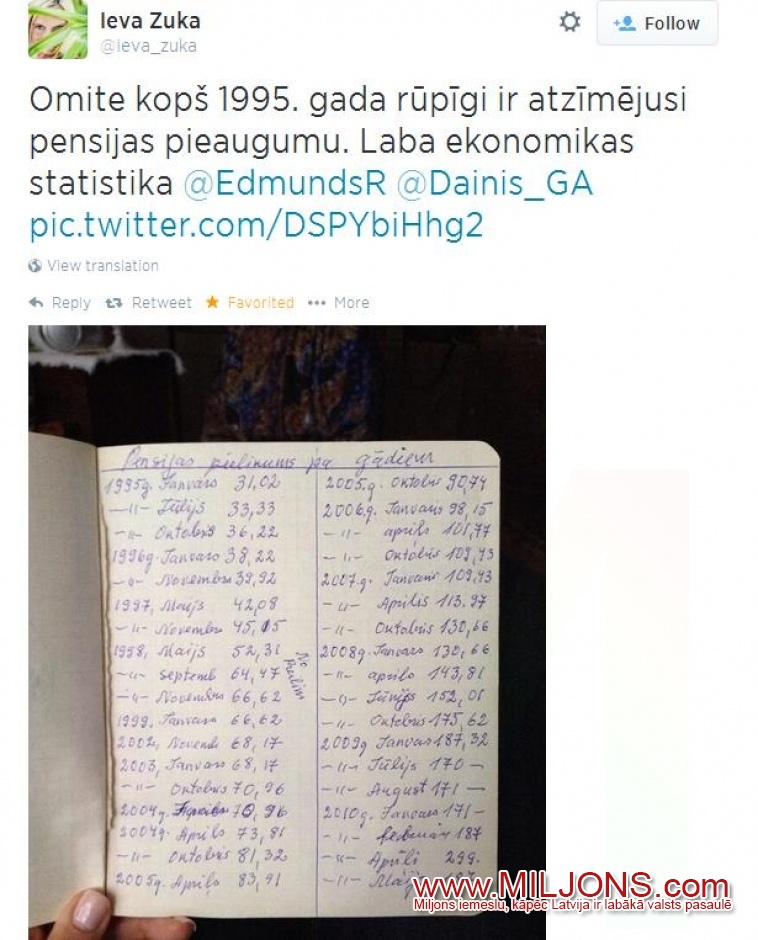 Ieva Zuka
@ieva_zuka
Follow
Omite kopš 1995. gada rūpīgi ir atzīmējusi
pensijas pieaugumu. Laba ekonomikas
statistika @EdmundsR @Dainis_GA
pic.twitter.com/DSPYbiHhg2
View translation
Reply Retweet Favorited More
Pensijas pielikums pa gādiem
1995g. Janvārs 31,02
—„— Jūlijs 33,33
—„— Oktobris 36,22
1996g. Janvars 38,22
—„— Novembrs 39,92
1997, Maijs 42,08
—„— Novembrs 45,15
1998, Maijs 52,31
—„— septemb 64,47
—„— Novembrs 66,62
1999, Janvars 66,62
2002, Novemb 68,17
2003, Janvars 68,17
—„— Oktobris 70,96
2004g. 70,96
2004g. Aprils 73,81
—„— Oktobris 81,32
2005g. Apriļs 83,91
2005.g. Oktobis 90,74
2006g. Janvaris 98,15
—„— aprils 101,77
—„— Oktobris 109,43
2007.g. Janvaris 109,43
—„— Aprilis 113.97
—„— Oktobris 130,66
2008g. Janvars 130,66
—„— aprils 143,81
—„— Jūnijs 152,01
—„— Oktobris 175,62
2009g Janvars 187,32
—„— Jūlijs 170 —
—„— August 171 —
2010g. Janvars 171 —
—„— februār 187
—„— Aprīli 299.
—„— Maijs
www.MILJONS.com
Miljons iemeslu, kāpēc Latvija ir labākā valsts pasaulē